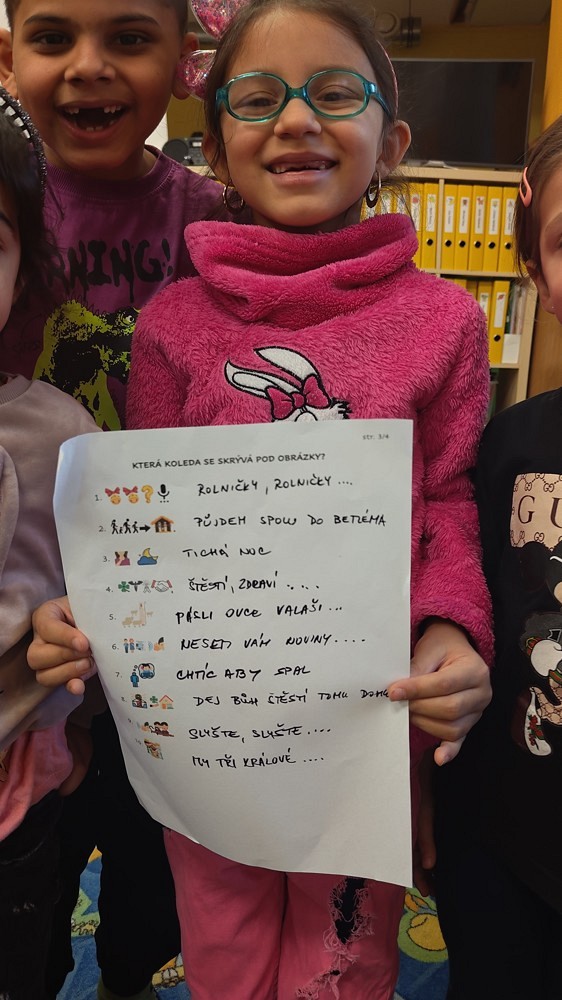 RNING!
GU
Str: 3/4
KTERÁ KOLEDA SE SKRÝVÁ POD OBRÁZKY?
1. ROLNIČKY, ROLNIČKY ...
2. PŮJDEM SPOLU DO BETLÉMA
3. TICHÁ NOC
4. ŠTĚSTÍ, ZDRAVÍ ....
5. PÁSLI OVCE VALAŠI ...
6. NESEM VÁM NOVINY ....
7. CHTÍC ABY SPAL
8. DEJ BŮH ŠTĚSTÍ TOMU DOMU
SLYŠTE, SLYŠTE ....
MY TŘI KRÁLOVÉ ....